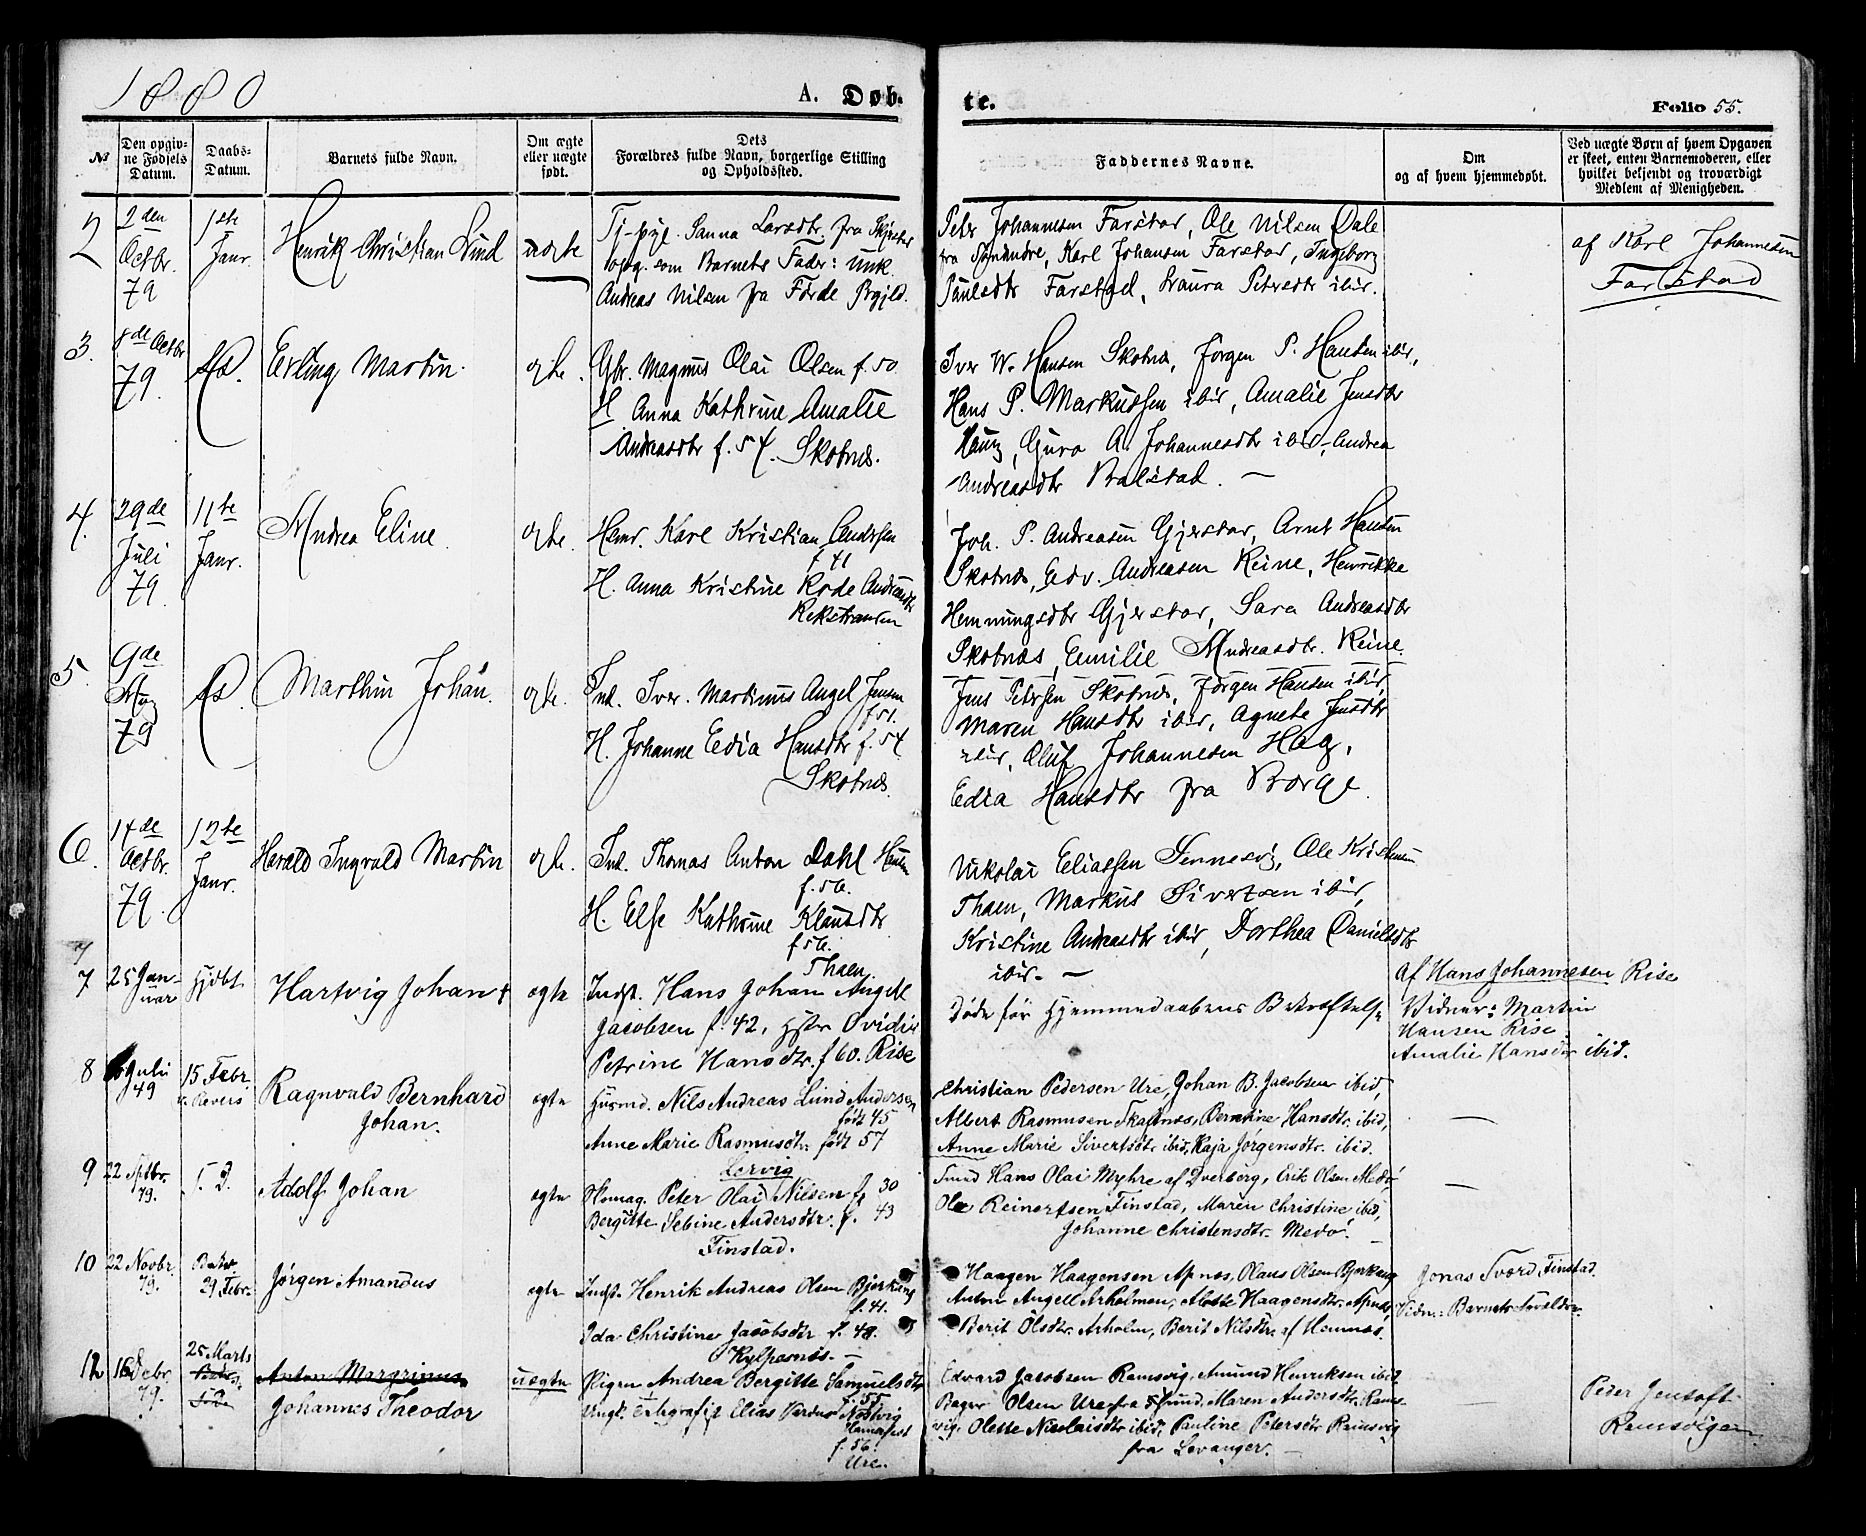 1880
A. Døb-
te.
Folio 55.
№
Den opgiv-
ne Fødsels
Datum.
Daabs-
Datum.
Barnets fulde Navn.
Om ægte
eller uægte
født.
Dets
Forældres fulde Navn, borgerlige Stilling
og Opholdssted.
Faddernes Navne.
Om
og af hvem hjemmedøbt.
Ved uægte Børn af hvem Opgaven
er skeet, enten Barnemoderen, eller
hvilket bekjendt og troværdigt
Medlem af Menigheden.
2
2den
Octbr.
79
1ste
Janr.
Henrik Christian Lund
uægte
Sanna Larsdtr. fra
som Barnets Fader: Unk.
Andreas Nilsen fra Førde
Peter Johannesen Farstad, Ole Nilsen Dale
Karl Johansen Farstad, Ingeborg
Paulsdtr Farstad, Laura Petersdtr ibid.
af Karl Johannesen
Farstad
3.
8de Octbr
79.
Erling Martin.
ægte.
Gbr. Magnus Olai Olsen f. 50
H. Anna Kathrine Amalie
Andreasdtr f. 54. Skotnæs.
Iver W. Hansen Skotnæs, Jørgen P. Hansen ibid,
Hans P. Markussen ibid, Amalie Jensdtr
Haug, Gura A. Johannesdtr ibid, Andrea
Andreasdtr Balstad. —
4.
29de
Juli
79
11te
Janr.
Andrea Eline
ægte.
Karl Kristian Andersen
f. 41
H. Anna Kristine Rode Andreasdtr
Joh. P. Andreasen Gjerstad, Arnt Hansen
Skotnæs, Edv. Andreasen Reine, Henrikka
Hemmingsdtr Gjerstad, Sara Andreasdtr
Skotnæs, Emilie Andreasdtr. Reine.
5.
9de
Aug
79
Marthin Johan.
ægte.
Ind. Iver Martinus Angel Jensen
f 51.
H. Johanne Edia Hansdtr f. 54
Skotnæs.
Jens Petersen Skotnæs, Jørgen Hansen ibid,
Maren Hansdtr ibid, Agnete Jensdtr
ibid, Oluf Johannesen Hag,
Edia Hansdtr fra Borge.
6.
14de
Octbr.
79.
12te
Janr.
Harald Ingvald Martin
ægte.
Ind. Thomas Anton Dahl Hansen
f. 56.
H. Else Kathrine Klausdtr
f 56.
Thaen.
Nikolai Eliassen Sennesvig, Ole Kristensen
Thaen, Markus Sivertsen ibid,
Kristine Andreasdtr ibid, Dorthea Danielsdtr
ibid. —
7
25 Jan-
uar
Hjdbt
Hartvig Johan †
ægte
Indst. Hans Johan Angell
Jacobsen f. 42, Hstr Ovidia
Petrine Hansdtr. f 60. Rise
Døde før Hjemmedaabens Bekræftelse
af Hans Johannesen Rise
Vidner: Martin
Hansen Rise.
Amalie Hansdtr ibid.
8
Juli
79
15 Febr.
Ragnvald Bernhard
Johan.
ægte
Husmd. Nils Andreas Lund Andersen
født 45
Anne Marie Rasmusdtr. født 57
Lervig
Christian Pedersen Ure, Johan B. Jacobsen ibid,
Albert Rasmussen Skaftnæs, Berntine Hansdtr. ibid,
Anne Marie Sivertsdtr ibid, Kaja Jørgensdtr. ibid.
—
9
22 Sptbr.
79.
S. D.
Adolf Johan
ægte
Peter Olai Nilsen f. 30
Bergitte Sebine Andersdtr. f. 43
Finstad.
Hans Olai Myhre af Dverberg, Erik Olsen Medø,
Ole Reinertsen Finstad, Maren Christine ibid,
Johanne Christensdtr. Medø.
—
10
22 Novbr.
79.
29 Febr.
Jørgen Amandus
ægte
Indst. Henrik Andreas Olsen Bjerkeng
f. 41.
Ida Christine Jacobsdtr f. 48.
Kylpesnæs. —
Haagen Haagensen Apnæs, Olaus Olsen Bjerkeng
Anton Angell Arholmen, Alette Haagensdtr. Apnæs,
Berit Olsdtr. Arholm, Berit Nilsdtr. af Hemnæs.
Jonas Sværd, Finstad.
Vidn.: Barnets Forældre.
12
16 Debr.
79.
25 Marts
Anton Margrinus
Johannes Theodor
uægte
Pigen Andrea Bergitte Samuelsdtr
f. 55
Ungk. Telegrafist Elias Nostvig
Hamerfest
f. 56.
Ure.
Edvard Jacobsen Ramsvig, Amund Henriksen ibid.
Olsen Ure, Maren Andersdtr. Rams-
vig, Olette Nicolaisdtr ibid, Pauline Petersdtr Ramsvig
fra Levanger. —
Peder Jentoft
Ramsvigen.